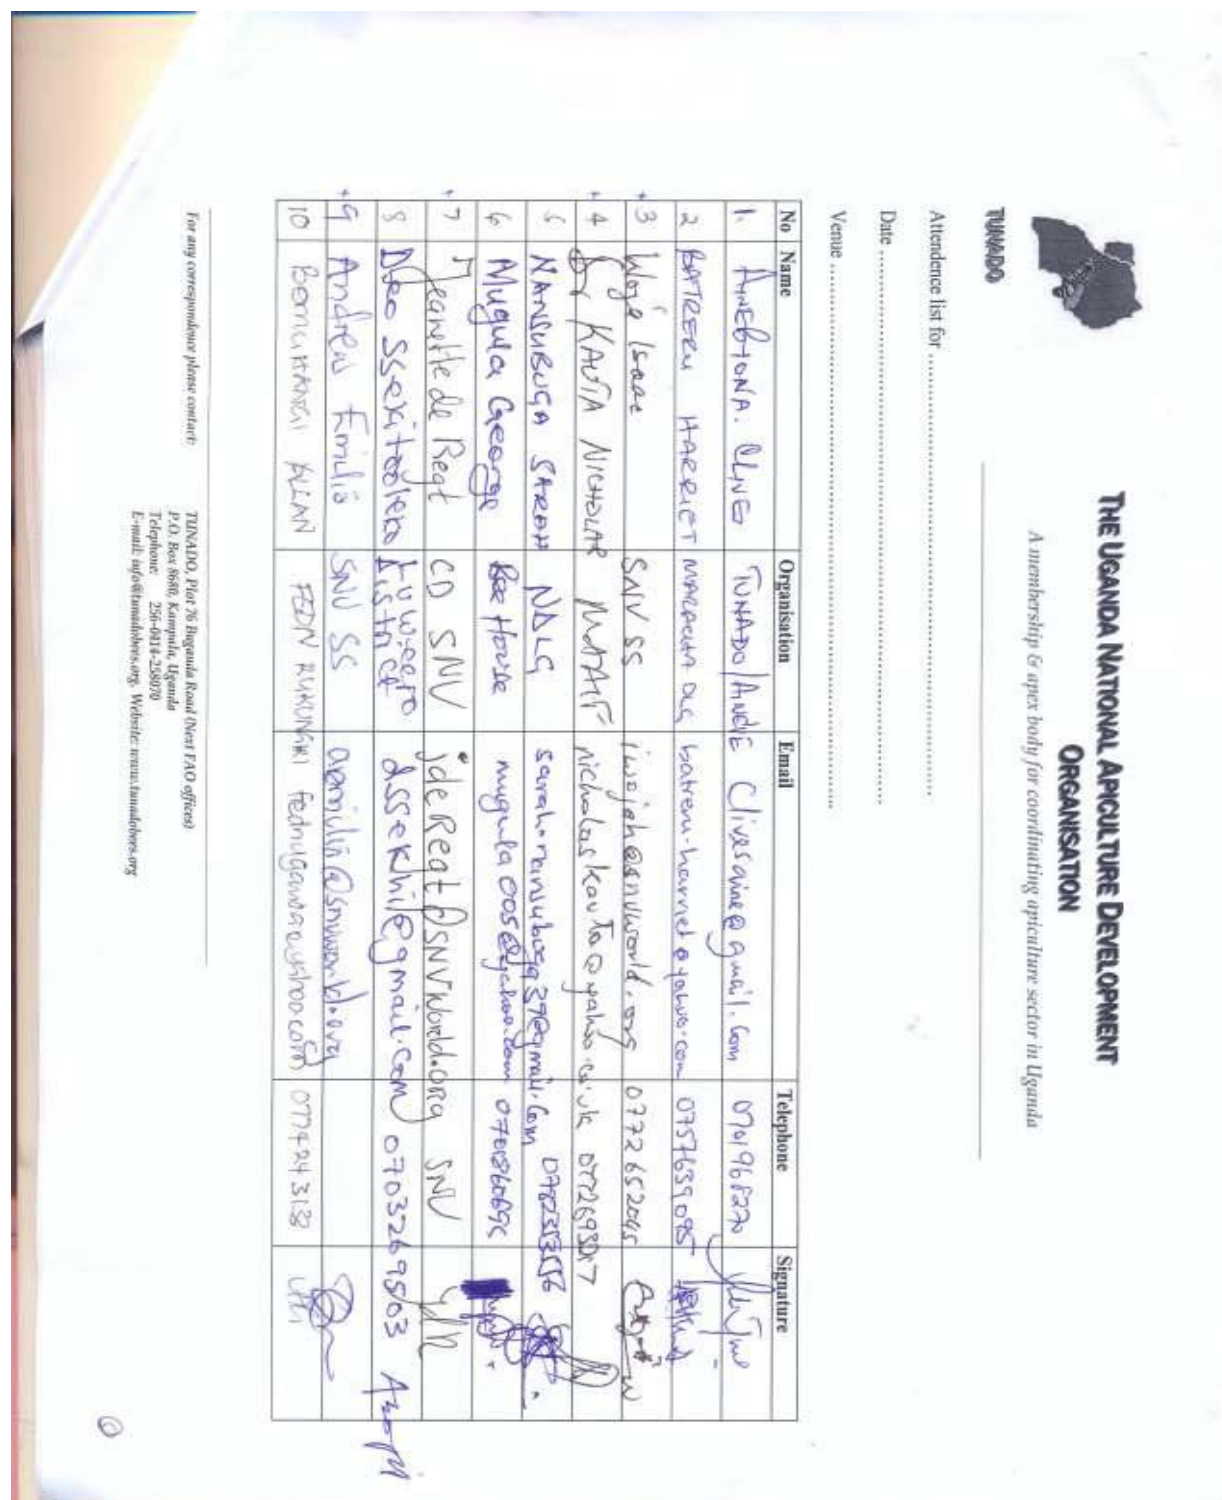 THE UGANDA NATIONAL APICULTURE DEVELOPMENT
ORGANISATION
A membership & apex body for coordinating apiculture sector in Uganda
TUNADO
Attendence list for
Date
Venue
No Name Organisation Email Telephone Signature
1. AINEBYONA. CLIVE TUNADO/ Clivesaine@gmail.com 0701968270
2 BATREEU HARRIET batreru.harriet@yahoo.com 0757639095
+3 Woja Isaac SNV SS iwojah@snvworld.org 0772652045
+4 Dr KAUTA NICHOLAS nicholaskauta@yahoo.co.uk
5 NANSUBUGA SARAH NDLG
6 Mugula George Bee House mugula005@yahoo.com
+7 Jeanette de Regt CD SNV jdeRegt@SNVWorld.org SNV
8 Deo Ssekitooleko Luweero District dssekhi@gmail.com 0703269503
+9 Andrew Emilio SNV SS
10 ALLAN RUKUNGIRI 0774243132
For any correspondence please contact:
TUNADO, Plot 76 Buganda Road (Next FAO offices)
P.O. Box 8680, Kampala, Uganda
Telephone: 256-0414-258070
E-mail: info@tunadobees.org, Website: www.tunadobees.org